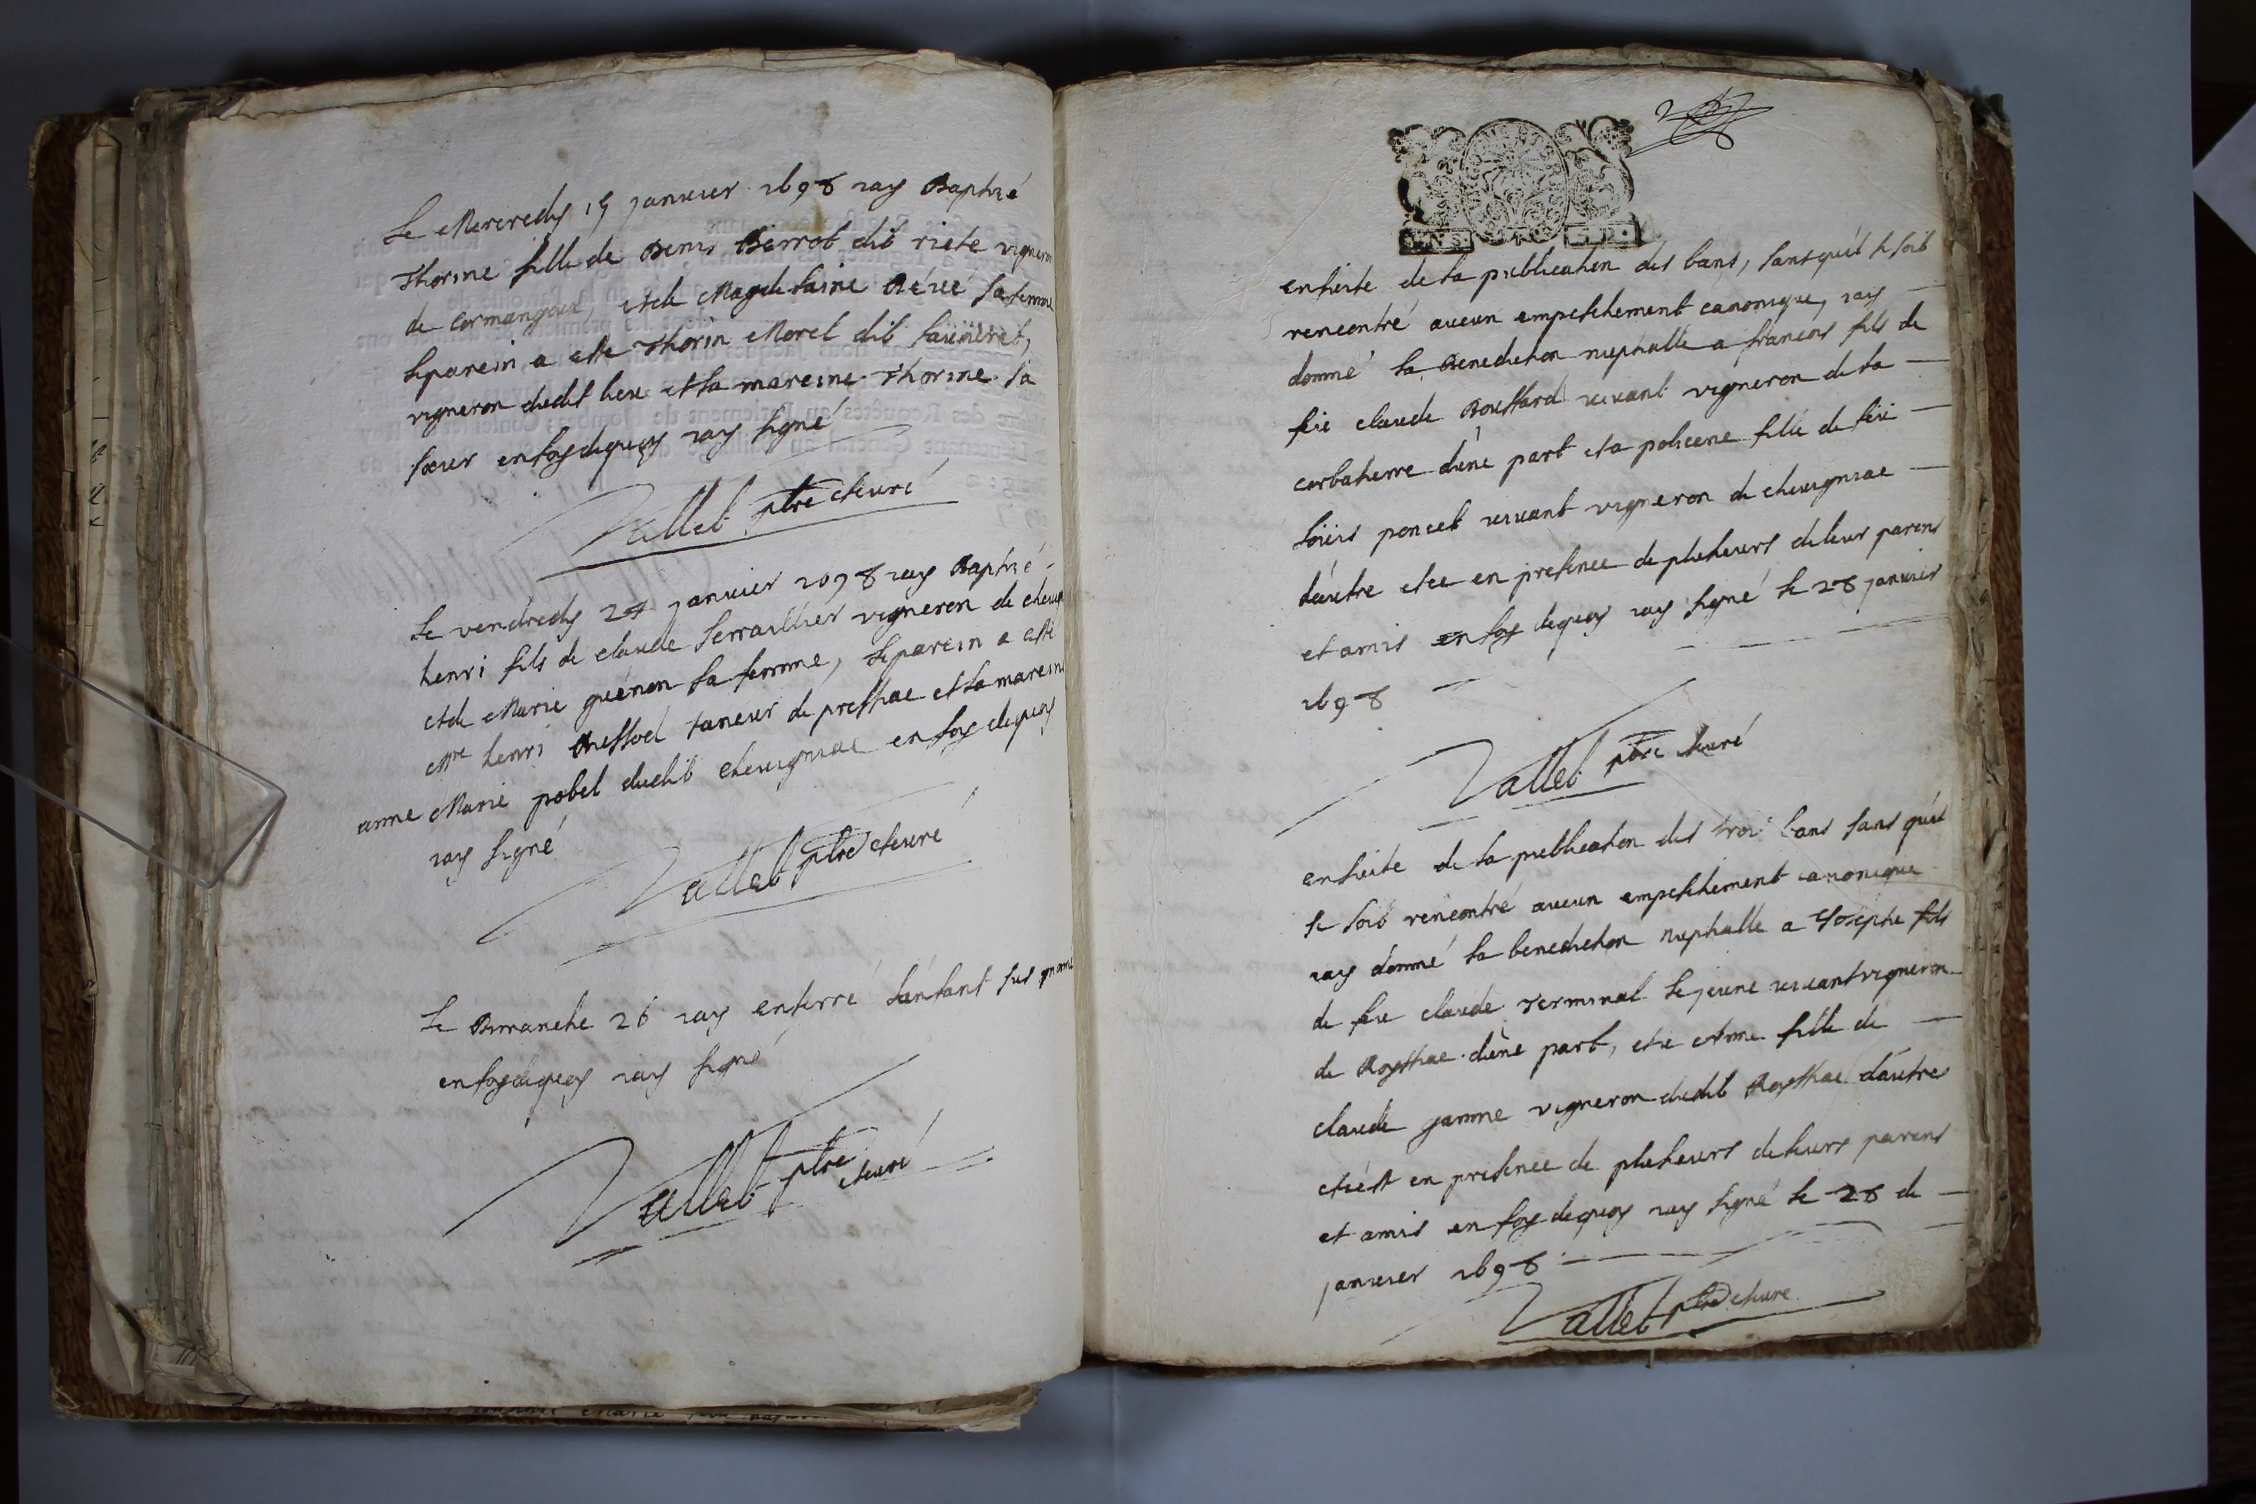 Le Mercredy 15 janvier 1698 iay Baptizé
Thorine fille de Denis Berrot dit riete vigneron
de Cormangoux, et de Magdelaine Révé sa femme
le parein a esté Thorin Morel dit
vigneron dudit lieu et la mareine Thorine sa
soeur en foy de quoy iay signé
Vallet ptre et curé
Le vendredy 24 janvier 1698 iay Baptizé
henri fils de claude Serraillier vigneron de
et de Marie guénon sa femme, le parein a esté
Mre henri taneur de et la mareine
anne Marie pobel dudit chevigniac en foy de quoy
iay signé
Vallet ptre et curé
Le Dimanche 26 iay enterré l'anfant sus
en foy de quoy iay signé
Vallet ptre et curé
2
ensuite de la publication des bans, sans quil se soit
rencontré aucun empeschement canonique, iay
donné la Benediction nuptialle a francois fils de
feu claude Bouffard vivant vigneron de la
corbatierre d'une part et a policene fille de feu
loüis poncet vivant vigneron de chevigniac
d'autre et ce en presence de plusieurs de leur parens
et amis en foy de quoy iay signé le 28 janvier
1698
Vallet ptre et curé
ensuite de la publication des trois bans sans quil
se soit rencontré aucun empeschement canonique
iay donné la benediction nuptialle a Josephe fils
de feu claude Terminal le jeune vivant vigneron
de Roissiac d'une part, et a Anne fille de
claude jamme vigneron dudit Roissiac d'autre
et c'est en presence de plusieurs de leurs parens
et amis en foy de quoy iay signé le 28 de
janvier 1698
Vallet ptre et curé